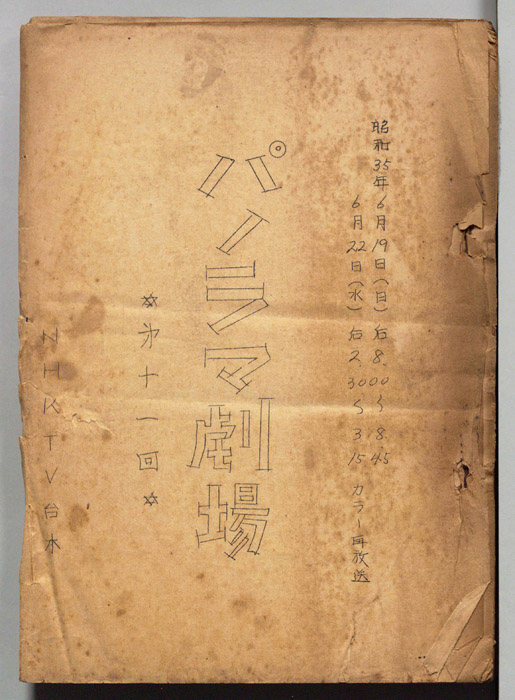 昭和35年6月19日(日)后8.00〜8.45
6月22日(水)后2.30〜3.15 カラー再放送
パノラマ劇場
✡第十一回✡
NHKTV台本